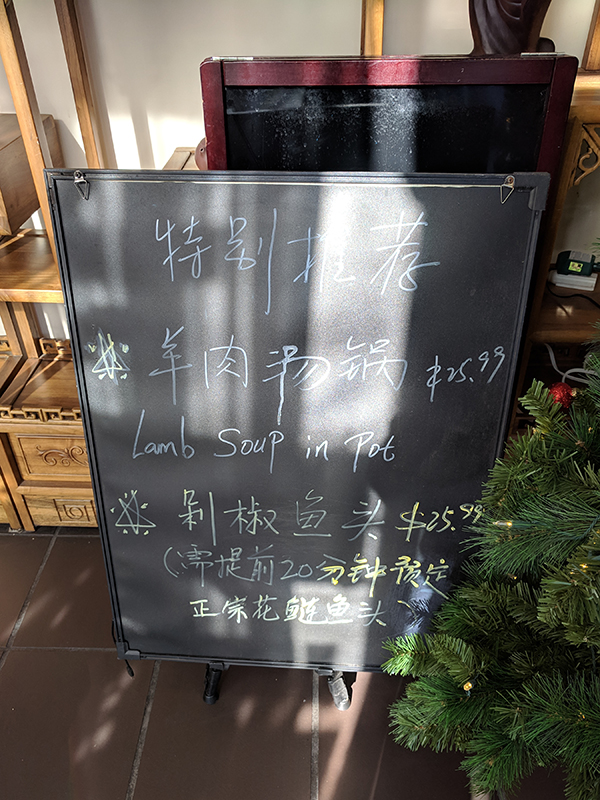 特别推荐
羊肉汤锅 $25.99
Lamb Soup in Pot
剁椒鱼头 $25.99
(需提前20分钟预定
正宗花鲢鱼头)